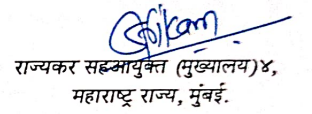 राज्यकर सहआयुक्त (मुख्यालय)४,
महाराष्ट्र राज्य, मुंबई.